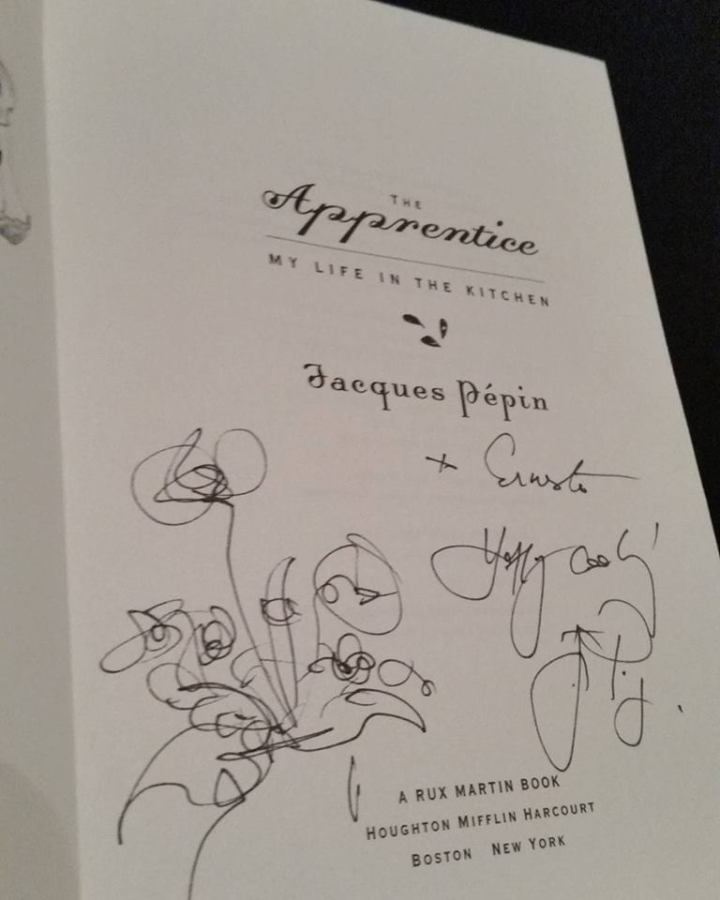 THE
Apprentice
MY LIFE IN THE KITCHEN
Jacques Pépin
+ Ernesto
Happy Cooking!
A RUX MARTIN BOOK
HOUGHTON MIFFLIN HARCOURT
BOSTON NEW YORK